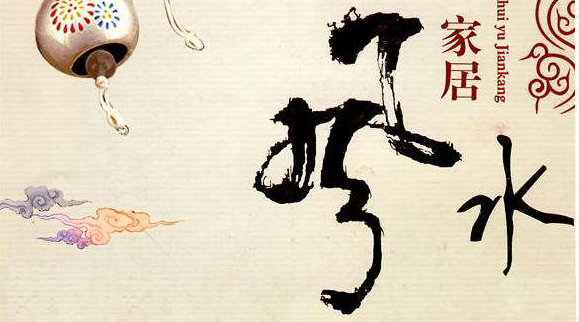 家居
hui yu Jiankang
风水